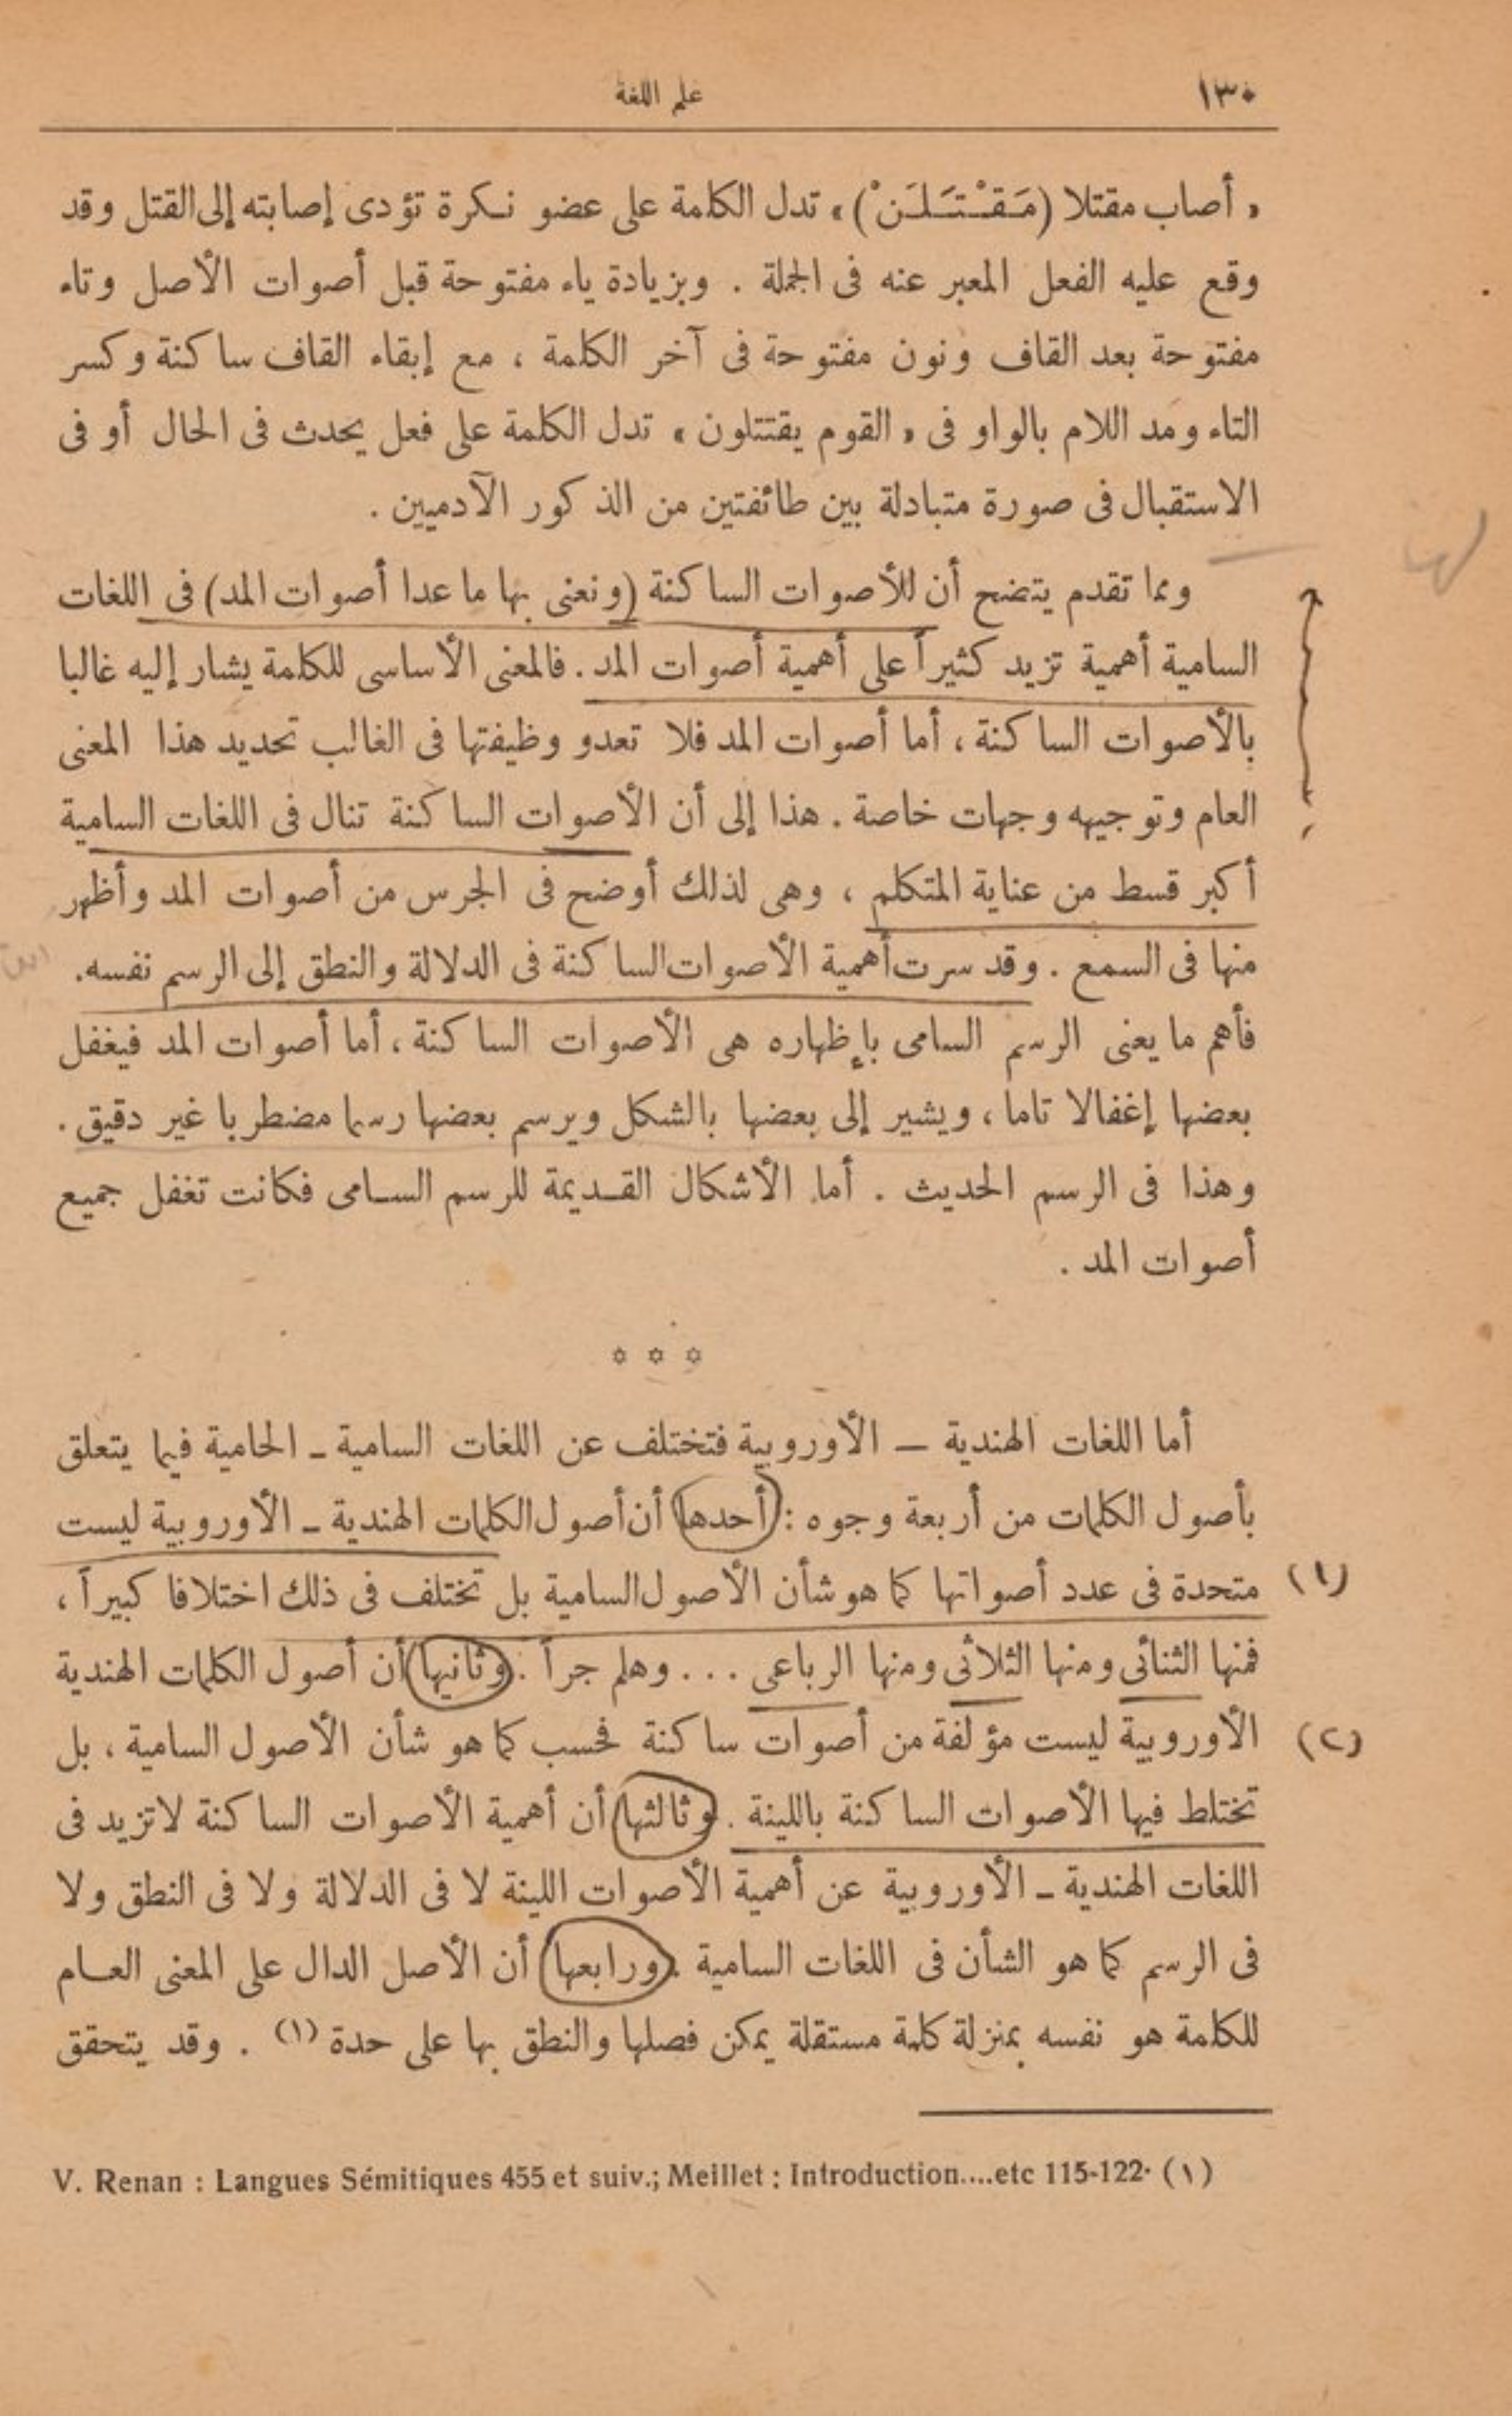 ١٣٠
علم اللغة
« أصاب مقتلا (مَـقـْـتـَـلـَـنْ) » تدل الكلمة على عضو نـكرة تؤدى إصابته إلى القتل وقد
وقع عليه الفعل المعبر عنه فى الجملة . وبزيادة ياء مفتوحة قبل أصوات الأصل وتاء
مفتوحة بعد القاف ونون مفتوحة فى آخر الكلمة ، مع إبقاء القاف ساكنة وكسر
التاء ومد اللام بالواو فى « القوم يقتتلون » تدل الكلمة على فعل يحدث فى الحال أو فى
الاستقبال فى صورة متبادلة بين طائفتين من الذكور الآدميين .
ومما تقدم يتضح أن للأصوات الساكنة (ونعنى بها ما عدا أصوات المد) فى اللغات
السامية أهمية تزيد كثيراً على أهمية أصوات المد . فالمعنى الأساسى للكلمة يشار إليه غالبا
بالأصوات الساكنة ، أما أصوات المد فلا تعدو وظيفتها فى الغالب تحديد هذا المعنى
العام وتوجيهه وجهات خاصة . هذا إلى أن الأصوات الساكنة تنال فى اللغات السامية
أكبر قسط من عناية المتكلم ، وهى لذلك أوضح فى الجرس من أصوات المد وأظهر
منها فى السمع . وقد سرت أهمية الأصوات الساكنة فى الدلالة والنطق إلى الرسم نفسه .
فأهم ما يعنى الرسم السامى بإظهاره هى الأصوات الساكنة ، أما أصوات المد فيغفل
بعضها إغفالا تاما ، ويشير إلى بعضها بالشكل ويرسم بعضها رسما مضطربا غير دقيق .
وهذا فى الرسم الحديث . أما الأشكال القـديمة للرسم السـامى فكانت تغفل جميع
أصوات المد .
✡ ✡ ✡
أما اللغات الهندية — الأوروبية فتختلف عن اللغات السامية ـ الحامية فيما يتعلق
بأصول الكلمات من أربعة وجوه : أحدها أن أصول الكلمات الهندية ـ الأوروبية ليست
متحدة فى عدد أصواتها كما هو شأن الأصول السامية بل تختلف فى ذلك اختلافا كبيراً ،
(١)
فمنها الثنائى ومنها الثلاثى ومنها الرباعى . . . وهلم جراً . وثانيها أن أصول الكلمات الهندية
الأوروبية ليست مؤلفة من أصوات ساكنة فحسب كما هو شأن الأصول السامية ، بل
(٢)
تختلط فيها الأصوات الساكنة باللينة . وثالثها أن أهمية الأصوات الساكنة لاتزيد فى
اللغات الهندية ـ الأوروبية عن أهمية الأصوات اللينة لا فى الدلالة ولا فى النطق ولا
فى الرسم كما هو الشأن فى اللغات السامية . ورابعها أن الأصل الدال على المعنى العـام
للكلمة هو نفسه بمنزلة كلمة مستقلة يمكن فصلها والنطق بها على حدة (١) . وقد يتحقق
V. Renan : Langues Sémitiques 455 et suiv.; Meillet : Introduction....etc 115-122. (١)